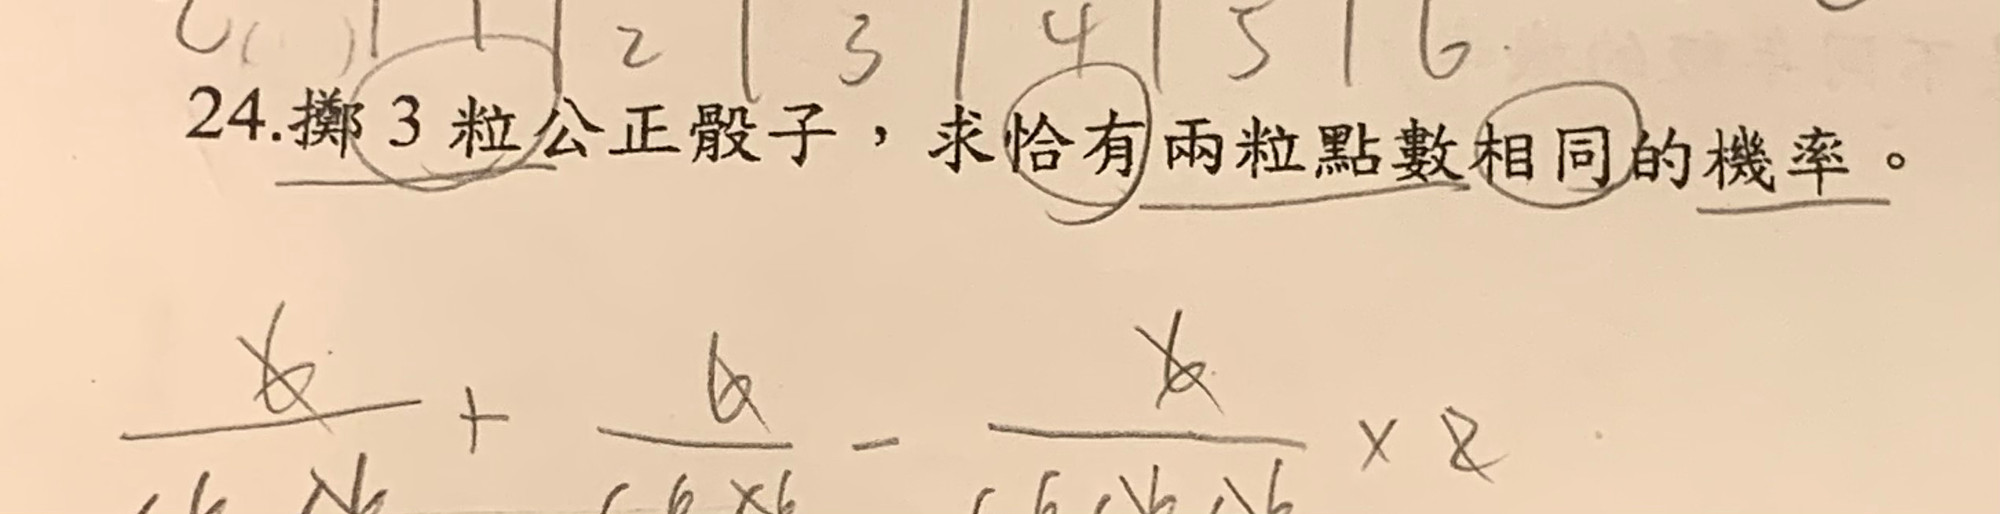 2 3 4 5 6
24.擲 3 粒公正骰子，求恰有兩粒點數相同的機率。
6 + 6 - 6 × 2